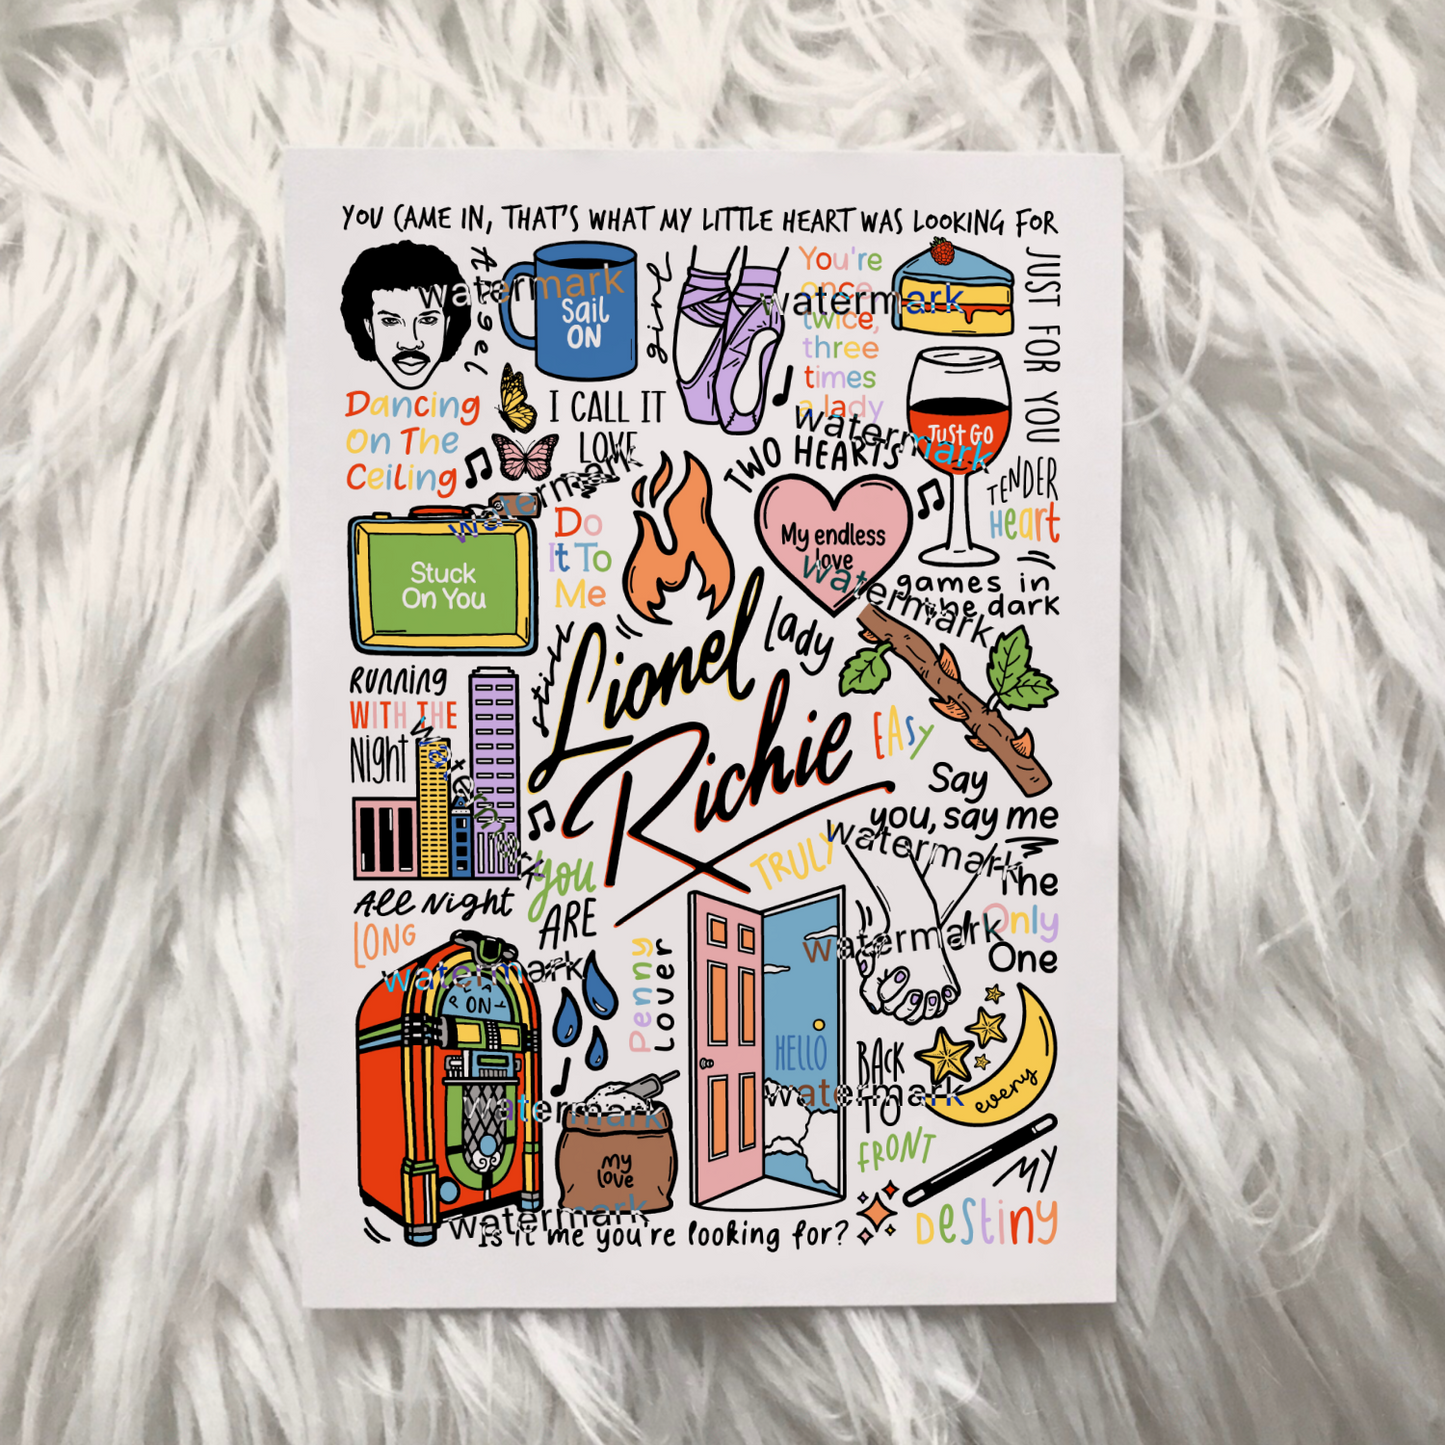 YOU CAME IN, THAT'S WHAT MY LITTLE HEART WAS LOOKING FOR
JUST FOR YOU
Angel
watermark
Sail
ON
girl
You're
once,
twice,
three
times
a lady
watermark
Dancing
On The
Ceiling
I CALL IT
LOVE
watermark
TWO HEARTS
watermark
JUST GO
TENDER
Heart
Stuck
On You
Do
It To
Me
My endless
love
watermark
games in
the dark
watermark
Running
WITH THE
Night
watermark
still
Lionel
Richie
lady
EASY
Say
you, say me
watermark
TRULY
The
Only
One
watermark
You
ARE
All Night
LONG
watermark
PLAY
ON
Penny
Lover
HELLO
watermark
BACK
TO
FRONT
every
watermark
my
love
watermark
MY
Destiny
watermark
Is it me you're looking for?